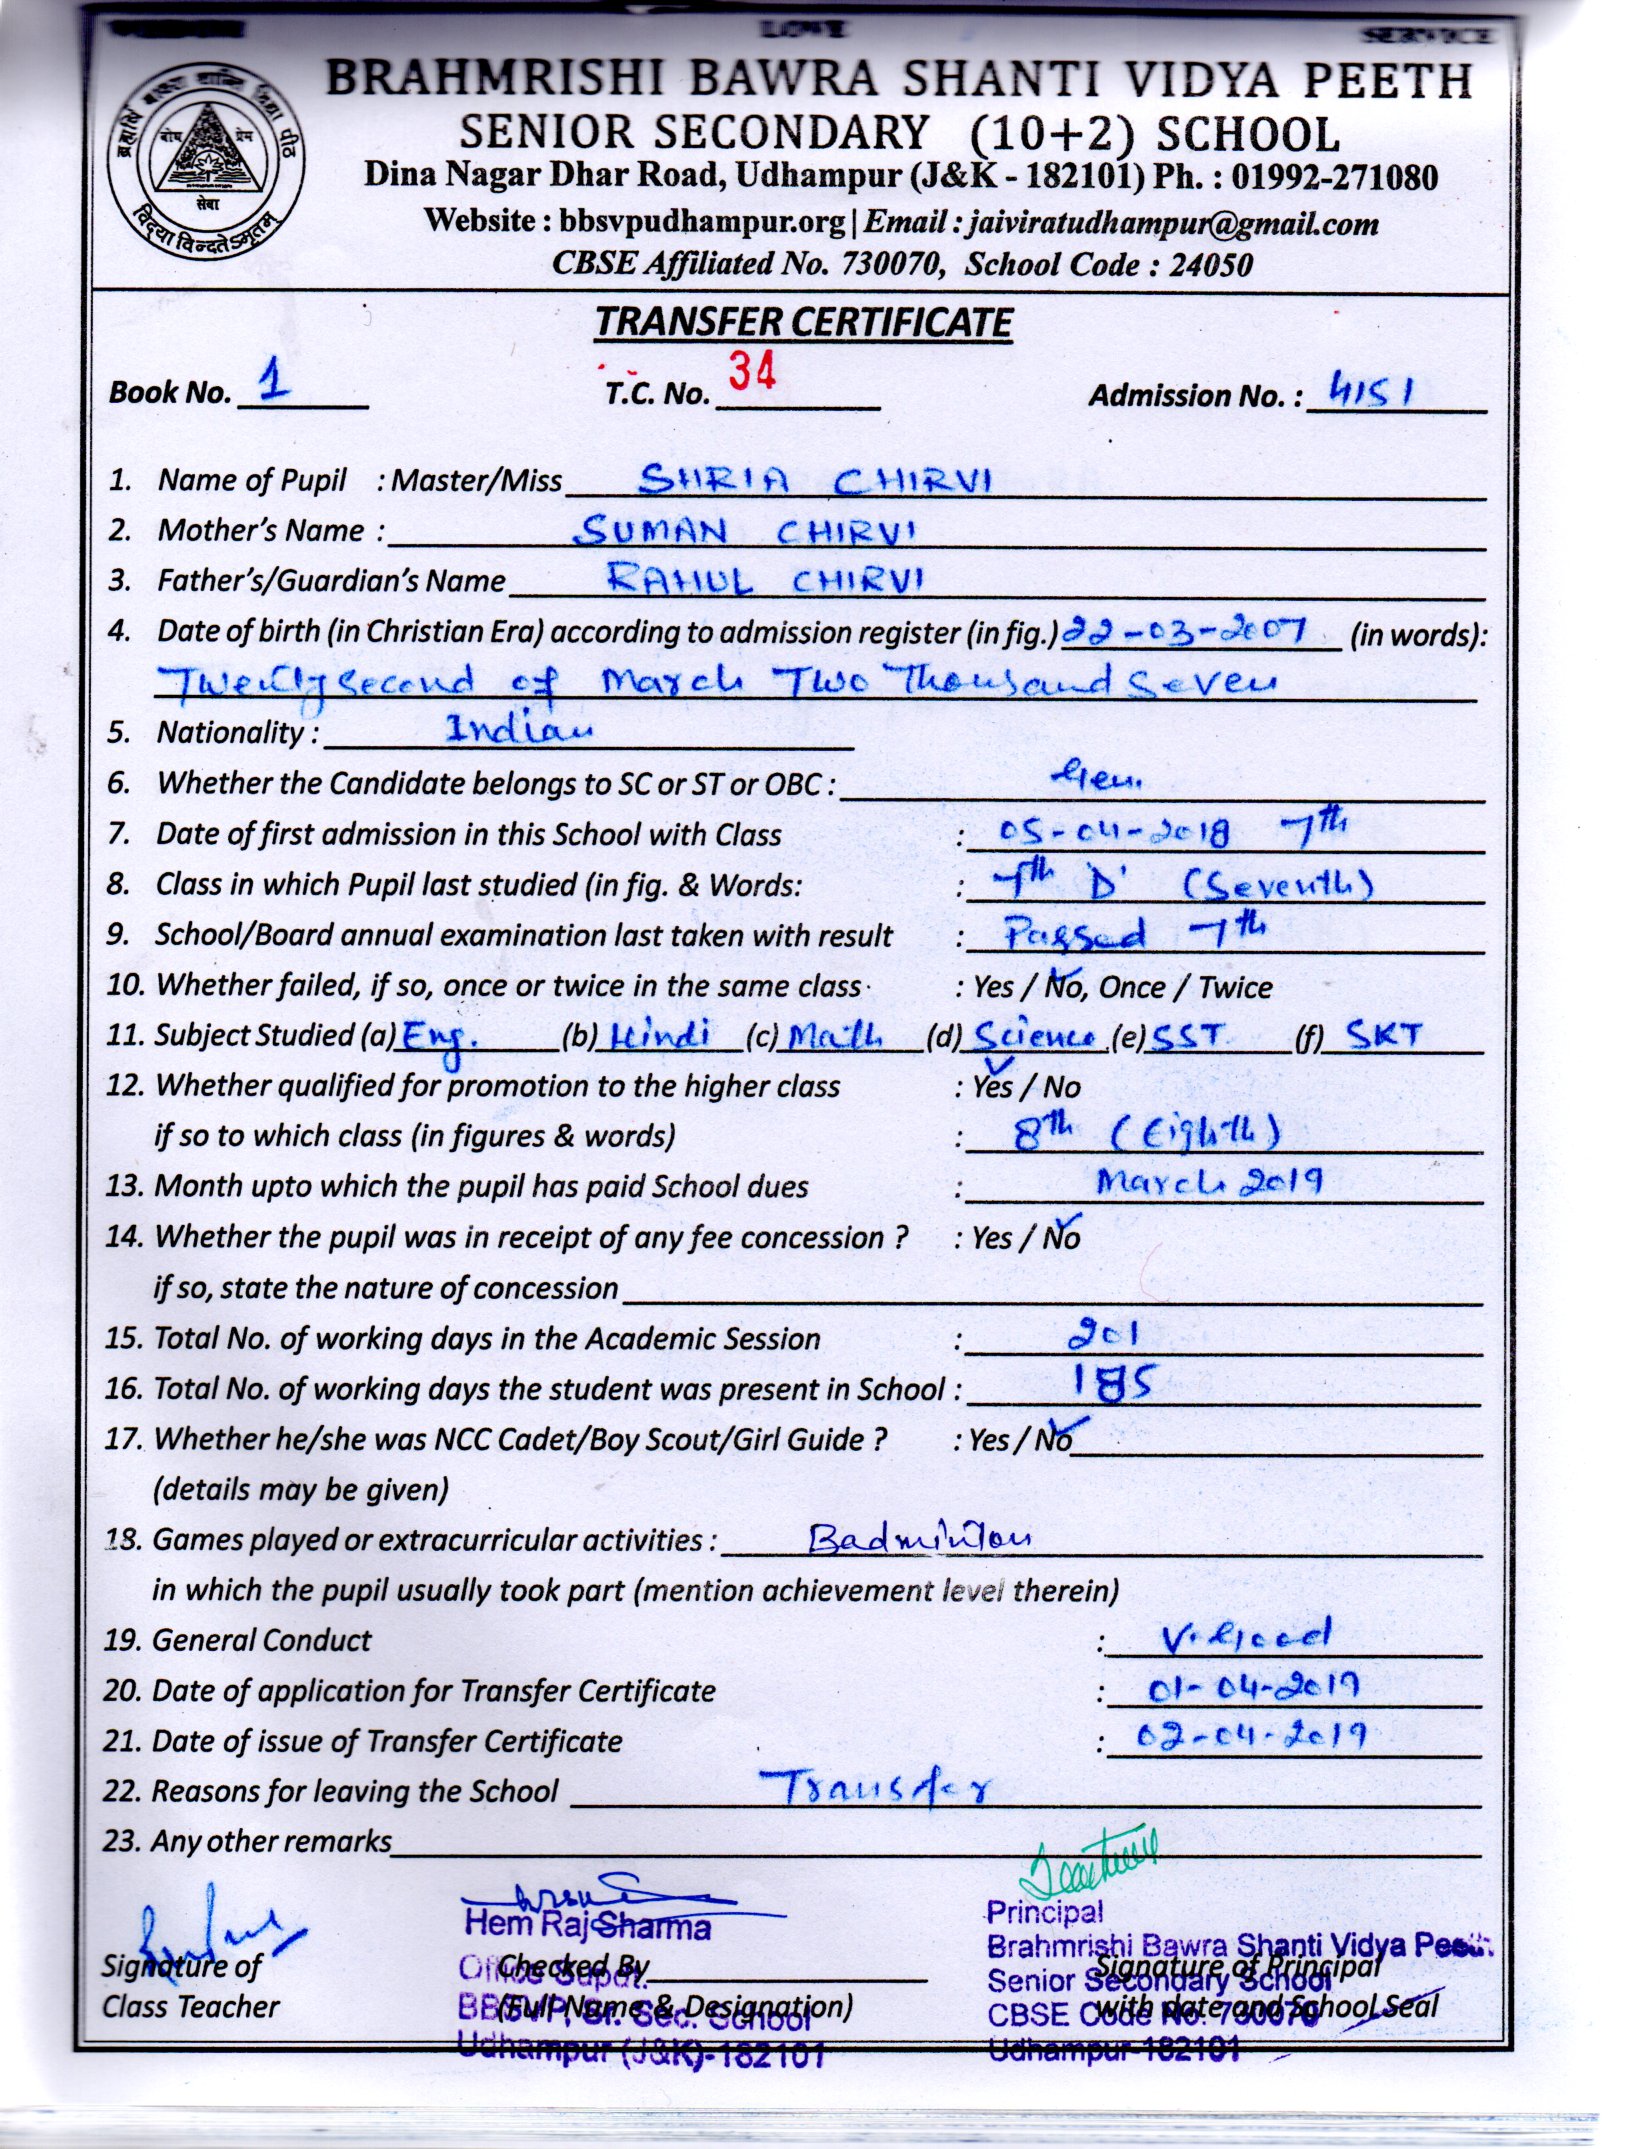 LOVE
SERVICE
ब्रह्मर्षि बावरा शान्ति विद्या पीठ
बोध प्रेम
सेवा
विद्यया विन्दतेऽमृतम्
BRAHMRISHI BAWRA SHANTI VIDYA PEETH
SENIOR SECONDARY (10+2) SCHOOL
Dina Nagar Dhar Road, Udhampur (J&K - 182101) Ph. : 01992-271080
Website : bbsvpudhampur.org | Email : jaiviratudhampur@gmail.com
CBSE Affiliated No. 730070, School Code : 24050
TRANSFER CERTIFICATE
Book No. 1 T.C. No. 34 Admission No. : 4151
1. Name of Pupil : Master/Miss SHRIA CHIRVI
2. Mother's Name : SUMAN CHIRVI
3. Father's/Guardian's Name RAHUL CHIRVI
4. Date of birth (in Christian Era) according to admission register (in fig.) 22-03-2007 (in words):
Twenty second of March Two Thousand Seven
5. Nationality : Indian
6. Whether the Candidate belongs to SC or ST or OBC : Gen.
7. Date of first admission in this School with Class : 05-04-2018 7th
8. Class in which Pupil last studied (in fig. & Words: : 7th D' (Seventh)
9. School/Board annual examination last taken with result : Passed 7th
10. Whether failed, if so, once or twice in the same class : Yes / No, Once / Twice
11. Subject Studied (a) Eng. (b) Hindi (c) Math (d) Science (e) SST (f) SKT
12. Whether qualified for promotion to the higher class : Yes / No
if so to which class (in figures & words) : 8th (Eighth)
13. Month upto which the pupil has paid School dues : March 2019
14. Whether the pupil was in receipt of any fee concession ? : Yes / No
if so, state the nature of concession
15. Total No. of working days in the Academic Session : 201
16. Total No. of working days the student was present in School : 185
17. Whether he/she was NCC Cadet/Boy Scout/Girl Guide ? : Yes / No
(details may be given)
18. Games played or extracurricular activities : Badminton
in which the pupil usually took part (mention achievement level therein)
19. General Conduct : V. Good
20. Date of application for Transfer Certificate : 01-04-2019
21. Date of issue of Transfer Certificate : 02-04-2019
22. Reasons for leaving the School Transfer
23. Any other remarks
Hem Raj Sharma
Office Supdt.
BBSVP, Sr. Sec. School
Udhampur (J&K)-182101
Principal
Brahmrishi Bawra Shanti Vidya Peeth
Senior Secondary School
CBSE Code No. 730070
Udhampur-182101
Signature of
Class Teacher
Checked By
(Full Name & Designation)
Signature of Principal
with date and School Seal